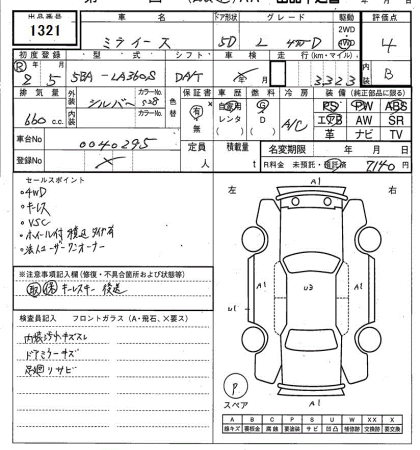 出品番号 車名 ドア形状 グレード 駆動 評価点
1321 ミライース 5D L 4WD 2WD 4WD 4
初度登録 型式 シフト 車検 走行(km・マイル) 内装
R 2 5 5BA-LA360S DAT 3323 B
年 月
排気量 外装 シルバー カラーNo. S28 色替 保証書 車歴 燃料 冷房 装備(純正部品に限る)
660 c.c. 内装 カラーNo. 有・無 自家用 レンタ G D A/C PS PW ABS
エアB AW SR
革 ナビ TV
車台No 0040295 定員 人 積載量 t 名変期限 年 月 日
登録No R料金 未預託・預託済 7140 円
セールスポイント
・4WD
・キーレス
・VSC
・ホイール付
・法人ユーザーワンオーナー
※注意事項記入欄(修復・不具合箇所および状態等)
取 保 キーレスキー 後送
検査員記入 フロントガラス(A・飛石、×要ス)
内装汚れキズスレ
ドアミラーキズ
足廻りサビ
左 右
A1
A1 U3 A1
U1
A1
P
スペア
A B C P S U W XX X
線キズ 要板金 腐蝕 要塗装 サビ 凹凸 補修跡 交換跡 要交換